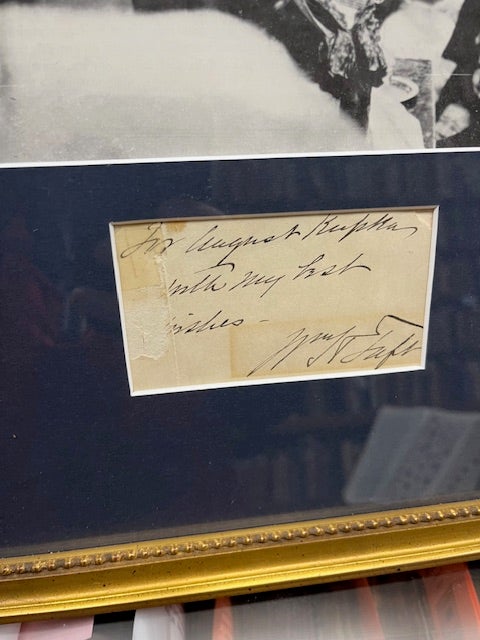 For August Kupka
with my best
wishes -
Wm H Taft